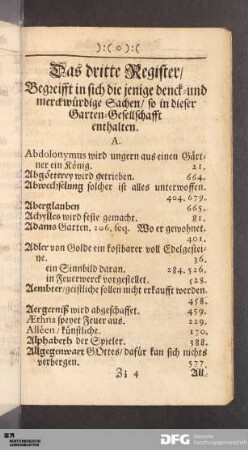 ):( o ):(
Das dritte Register/
Begreifft in sich die jenige denck- und
merckwürdige Sachen/ so in dieser
Garten-Gesellschafft
enthalten.
A.
Abdolonymus wird ungern aus einen Gärt-
ner ein König. 21.
Abgötterey wird getrieben. 664.
Abwechselung solcher ist alles unterwoffen.
404. 679.
Aberglauben 665.
Achylles wird feste gemacht. 81.
Adams Garten. 206. seq. Wo er gewohnet.
401.
Adler von Golde ein kostbarer voll Edelgestei-
ne. 36.
ein Sinnbild daran. 284. 526.
in Feuerwerck vorgestellet. 528.
Aembter/ geistliche sollen nicht erkaufft werden.
458.
Aergerniß wird abgeschaffet. 459.
Æthna speyet Feuer aus. 229.
Alléen/ künstliche. 170.
Alphabeth der Spieler. 388.
Allgegenwart GOttes/ dafür kan sich nichts
verbergen. 577.
Zi 4 All
DFG Deutsche
Forschungsgemeinschaft